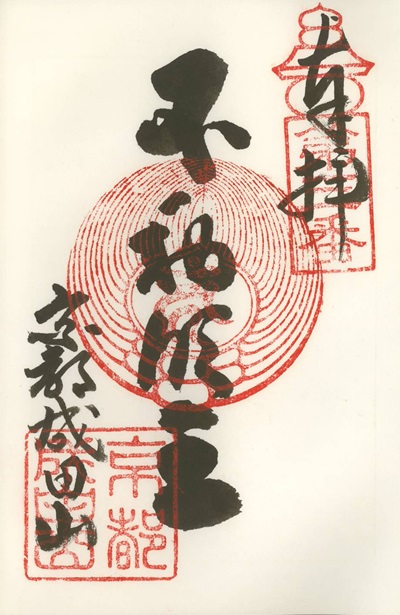 奉拝
不動明王
京都成田山
京都
成田山